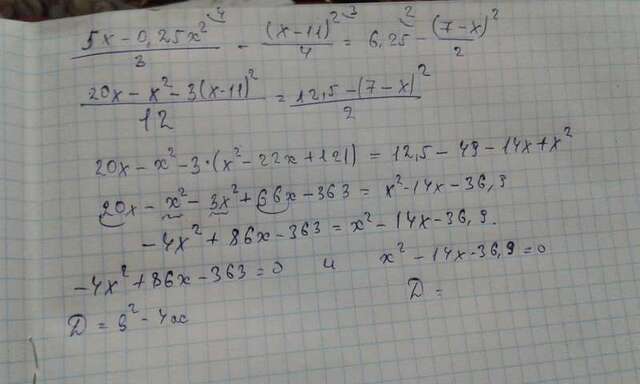 (5x - 0,25x²)/3 - (x-11)²/4 = 6,25 - (7-x)²/2
(20x - x² - 3(x-11)²)/12 = (12,5 - (7-x)²)/2
20x - x² - 3·(x² - 22x + 121) = 12,5 - 49 - 14x + x²
20x - x² - 3x² + 66x - 363 = x² - 14x - 36,9
-4x² + 86x - 363 = x² - 14x - 36,9.
-4x² + 86x - 363 = 0 и x² - 14x - 36,9 = 0
D = в² - 4ac D =